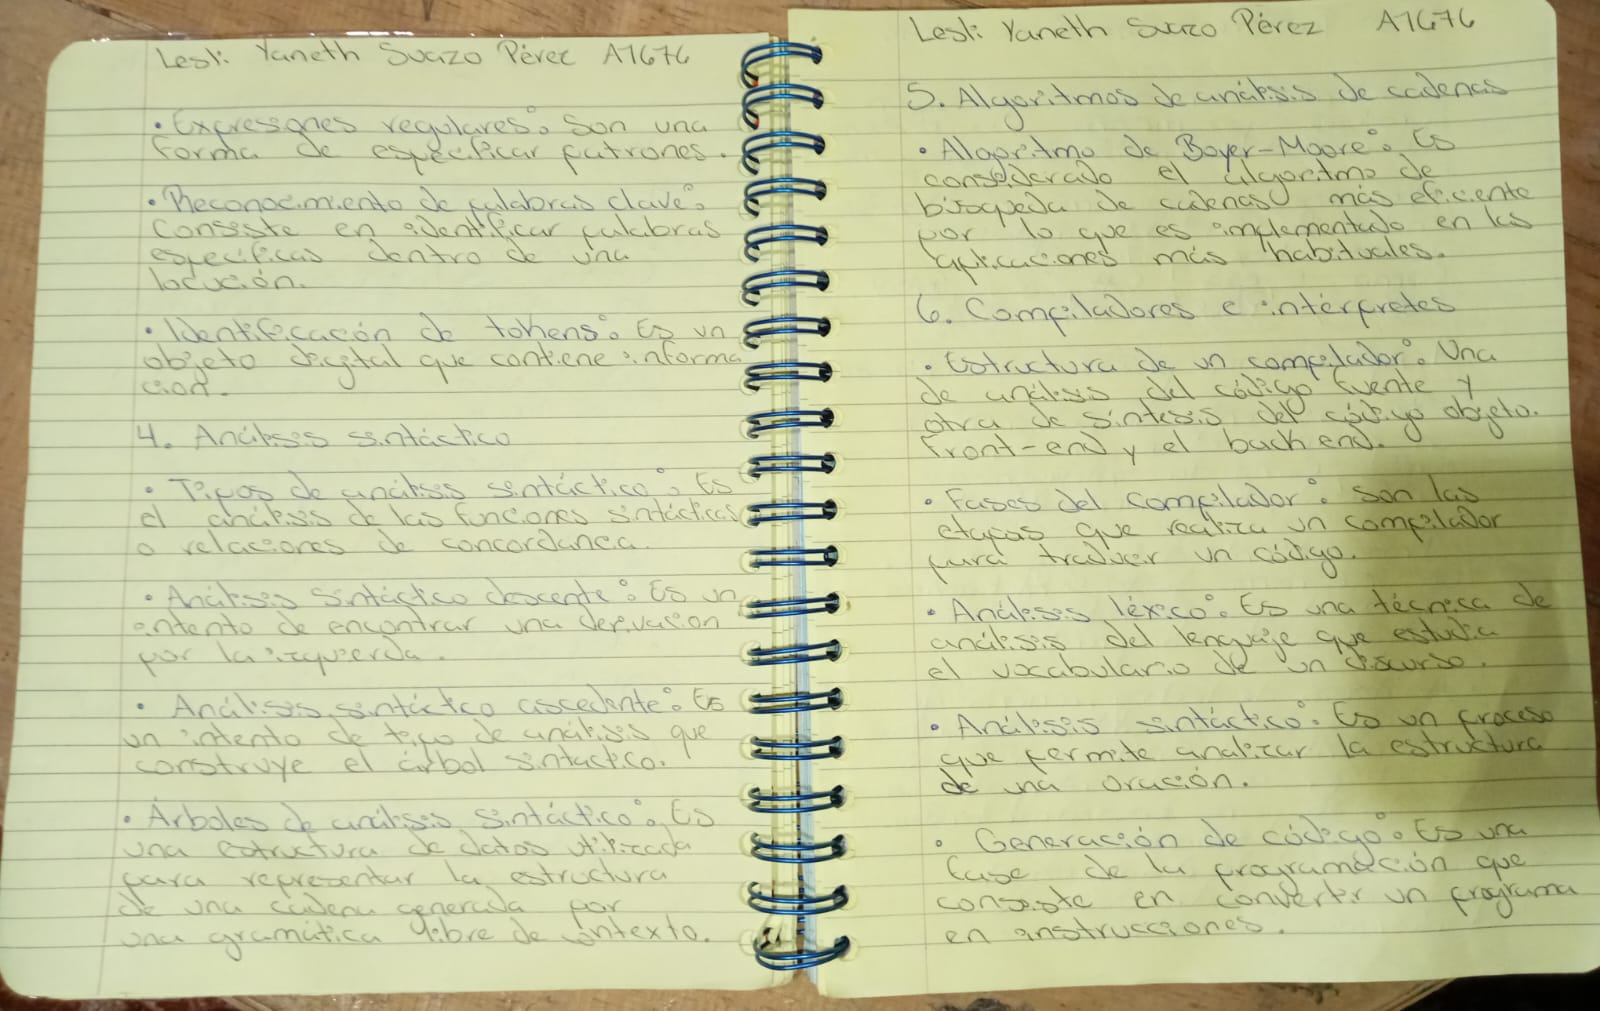 Lesli Yaneth Suazo Pérez A1676
• Expresiones regulares: Son una
forma de especificar patrones.
• Reconocimiento de palabras clave:
Consiste en identificar palabras
especificas dentro de una
locución.
• Identificación de tokens: Es un
objeto digital que contiene informa
cion.
4. Análisis sintáctico
• Tipos de análisis sintáctico: Es
el análisis de las funciones sintácticas
o relaciones de concordancia.
• Análisis sintáctico descente: Es un
intento de encontrar una derivacion
por la izquierda.
• Análisis sintáctico ascedente: Es
un intento de tipo de análisis que
construye el árbol sintactico.
• Árboles de análisis sintáctico: Es
una estructura de datos utilizada
para representar la estructura
de una cadena generada por
una gramática libre de contexto.
Lesli Yaneth Suazo Pérez A1676
5. Algoritmos de análisis de cadenas
• Algoritmo de Boyer-Moore: Es
considerado el algoritmo de
búsqueda de cadenas más eficiente
por lo que es implementado en las
aplicaciones más habituales.
6. Compiladores e intérpretes
• Estructura de un compilador: Una
de análisis del código fuente y
otra de síntesis del código objeto.
Front-end y el back end.
• Fases del compilador: Son las
etapas que realiza un compilador
para traducir un código.
• Análisis léxico: Es una técnica de
análisis del lenguaje que estudia
el vocabulario de un discurso.
• Análisis sintáctico: Es un proceso
que permite analizar la estructura
de una oración.
• Generación de código: Es una
fase de la programación que
consiste en convertir un programa
en instrucciones.